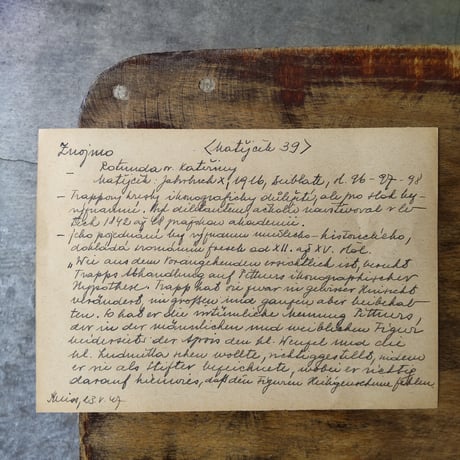 Znojmo
<Matějček 39>
– Rotunda sv. Kateřiny
Matějček: Jahrbuch X, 1916, Beiblatt, d. 96–97–98
– Trappovy kresby ikonograficky důležité, ale pro sloh bez
významu. Byl diletantem, ačkoliv navštěvoval v le-
tech 1842 až akademii.
– Jeho pojednání bez významu umělecko-historického,
dokládá románské fresk od XII. až XV. stol.
"Wie aus dem Vorausgehenden ersichtlich ist, beruht
Trapps Abhandlung auf Pittners ikonographischer
Hypothese. Trapp hat sie zwar in gewisser Hinsicht
verändert, im großen und ganzen aber beibehal-
ten. So hat er die irrtümliche Meinung Pittners,
der in der männlichen und weiblichen Figur
beiderseits der Apsis den hl. Wenzel und die
hl. Ludmilla sehen wollte, richtiggestellt, indem
er sie als Stifter bezeichnete, wobei er richtig
darauf hinwies, daß den Figuren Heiligenscheine fehlen
23.V.47